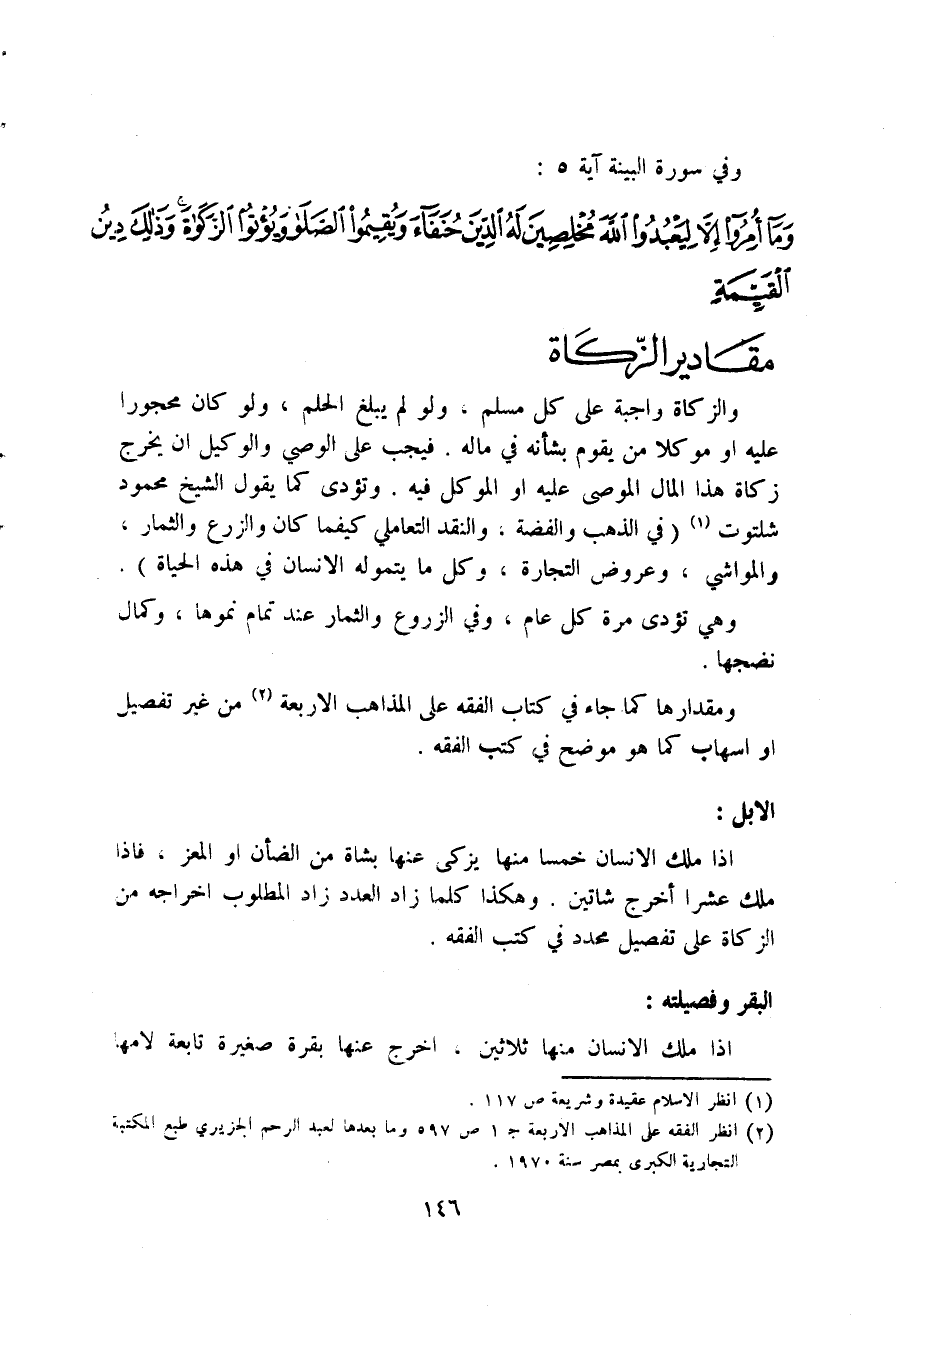 وفي سورة البينة آية ٥ :
وَمَآ أُمِرُوٓا۟ إِلَّا لِيَعْبُدُوا۟ ٱللَّهَ مُخْلِصِينَ لَهُ ٱلدِّينَ حُنَفَآءَ وَيُقِيمُوا۟ ٱلصَّلَوٰةَ وَيُؤْتُوا۟ ٱلزَّكَوٰةَ ۚ وَذَٰلِكَ دِينُ
ٱلْقَيِّمَةِ
مقادير الزّكاة
والزكاة واجبة على كل مسلم ، ولو لم يبلغ الحلم ، ولو كان محجورا
عليه او موكلا من يقوم بشأنه في ماله . فيجب على الوصي والوكيل ان يخرج
زكاة هذا المال الموصى عليه او الموكل فيه . وتؤدى كما يقول الشيخ محمود
شلتوت (١) ( في الذهب والفضة ، والنقد التعاملي كيفما كان والزرع والثمار ،
والمواشي ، وعروض التجارة ، وكل ما يتموله الانسان في هذه الحياة ) .
وهي تؤدى مرة كل عام ، وفي الزروع والثمار عند تمام نموها ، وكمال
نضجها .
ومقدارها كما جاء في كتاب الفقه على المذاهب الاربعة (٢) من غير تفصيل
او اسهاب كما هو موضح في كتب الفقه .
الابل :
اذا ملك الانسان خمسا منها يزكى عنها بشاة من الضأن او المعز ، فاذا
ملك عشرا أخرج شاتين . وهكذا كلما زاد العدد زاد المطلوب اخراجه من
الزكاة على تفصيل محدد في كتب الفقه .
البقر وفصيلته :
اذا ملك الانسان منها ثلاثين ، اخرج عنها بقرة صغيرة تابعة لامها
(١) انظر الاسلام عقيدة وشريعة ص ١١٧ .
(٢) انظر الفقه على المذاهب الاربعة جـ ١ ص ٥٩٧ وما بعدها لعبد الرحم الجزيري طبع المكتبة
التجارية الكبرى بمصر سنة ١٩٧٠ .
١٤٦